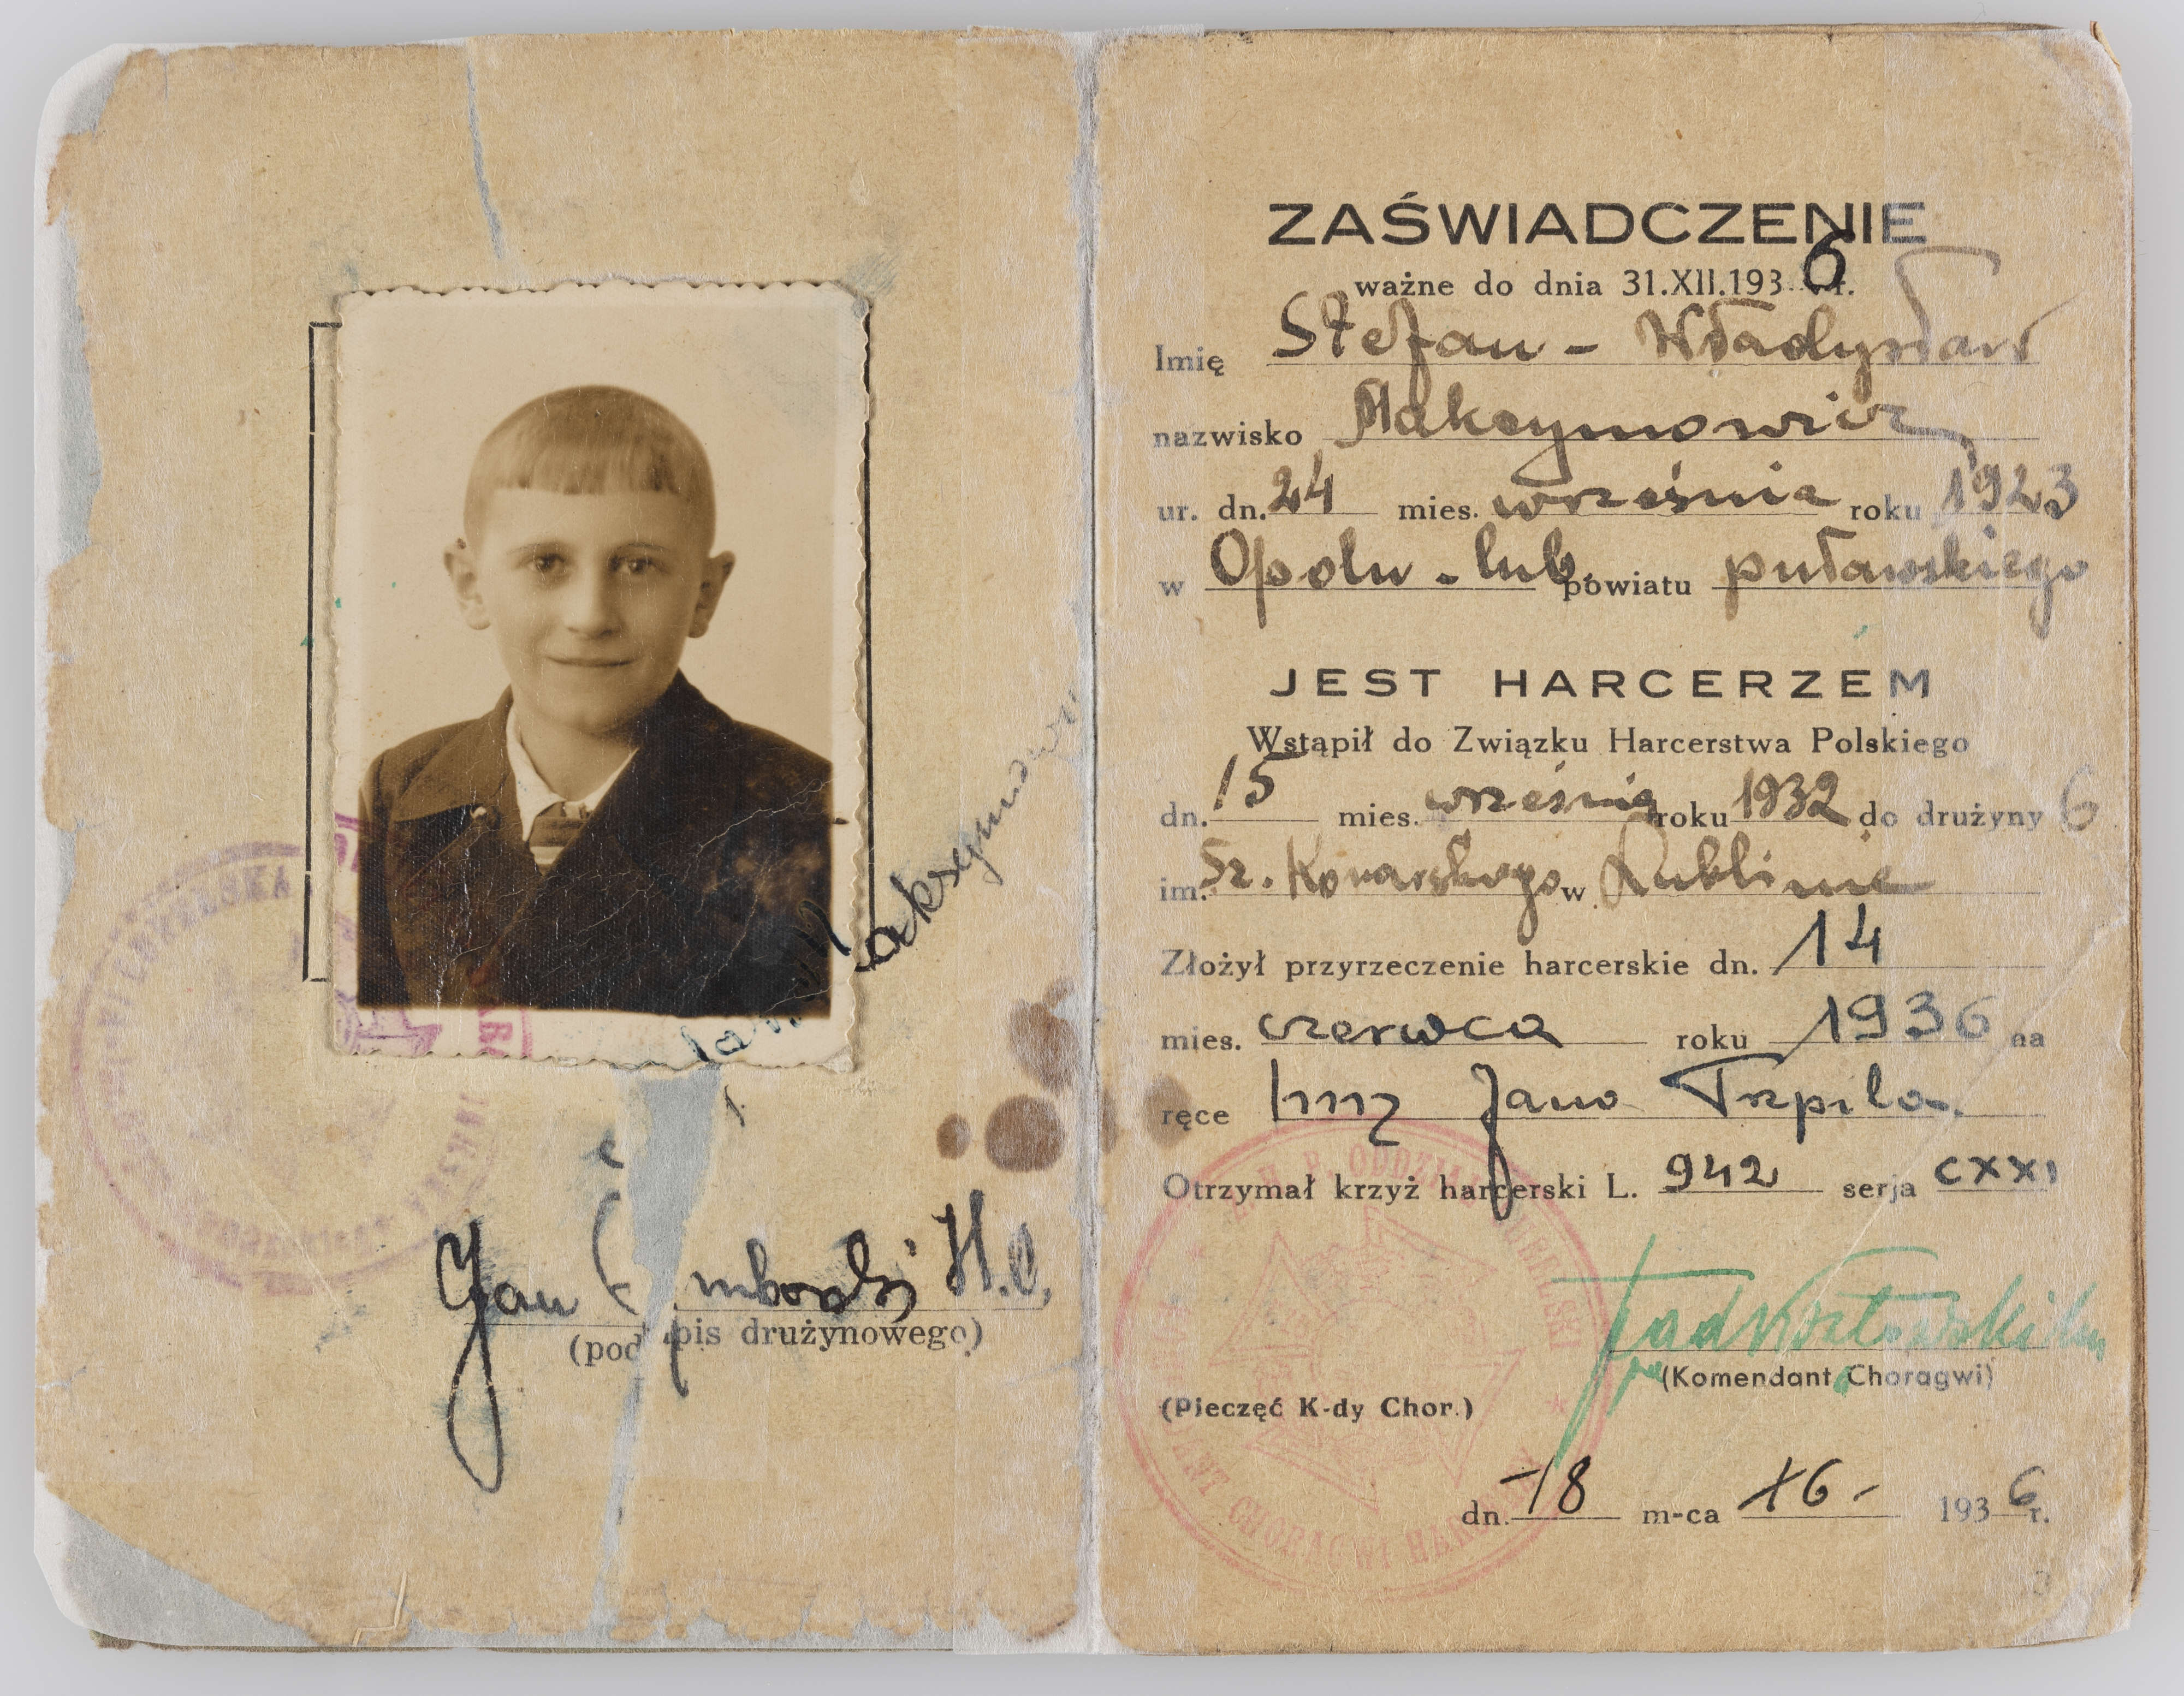 aksymowi
Jan mborski H.O.
(podpis drużynowego)
ZAŚWIADCZENIE
ważne do dnia 31.XII.1936 r.
Imię Stefan - Władysław
nazwisko Maksymowicz
ur. dn. 24 mies. września roku 1923
w Opolu - lub. powiatu puławskiego
JEST HARCERZEM
Wstąpił do Związku Harcerstwa Polskiego
dn. 15 mies. września roku 1932 do drużyny 6
im. Sz. Konarskiego w Lublinie
Złożył przyrzeczenie harcerskie dn. 14
mies. czerwca roku 1936 na
ręce hm Jana Trzpila.
Otrzymał krzyż harcerski L. 942 serja CXXI
(Komendant Chorągwi)
(Pieczęć K-dy Chor.)
dn. 18 m-ca 6 - 1936 r.